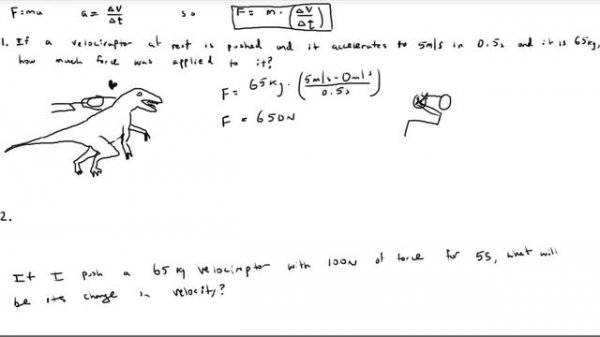 F=ma a= Δv/Δt so F= m · (Δv/Δt)
1. If a velociraptor at rest is pushed and it accelerates to 5m/s in 0.5s and it is 65kg,
how much force was applied to it?
F= 65kg · (5m/s - 0m/s / 0.5s)
F = 650N
2.
If I push a 65 kg velociraptor with 100N of force for 5s, what will
be its change in velocity?